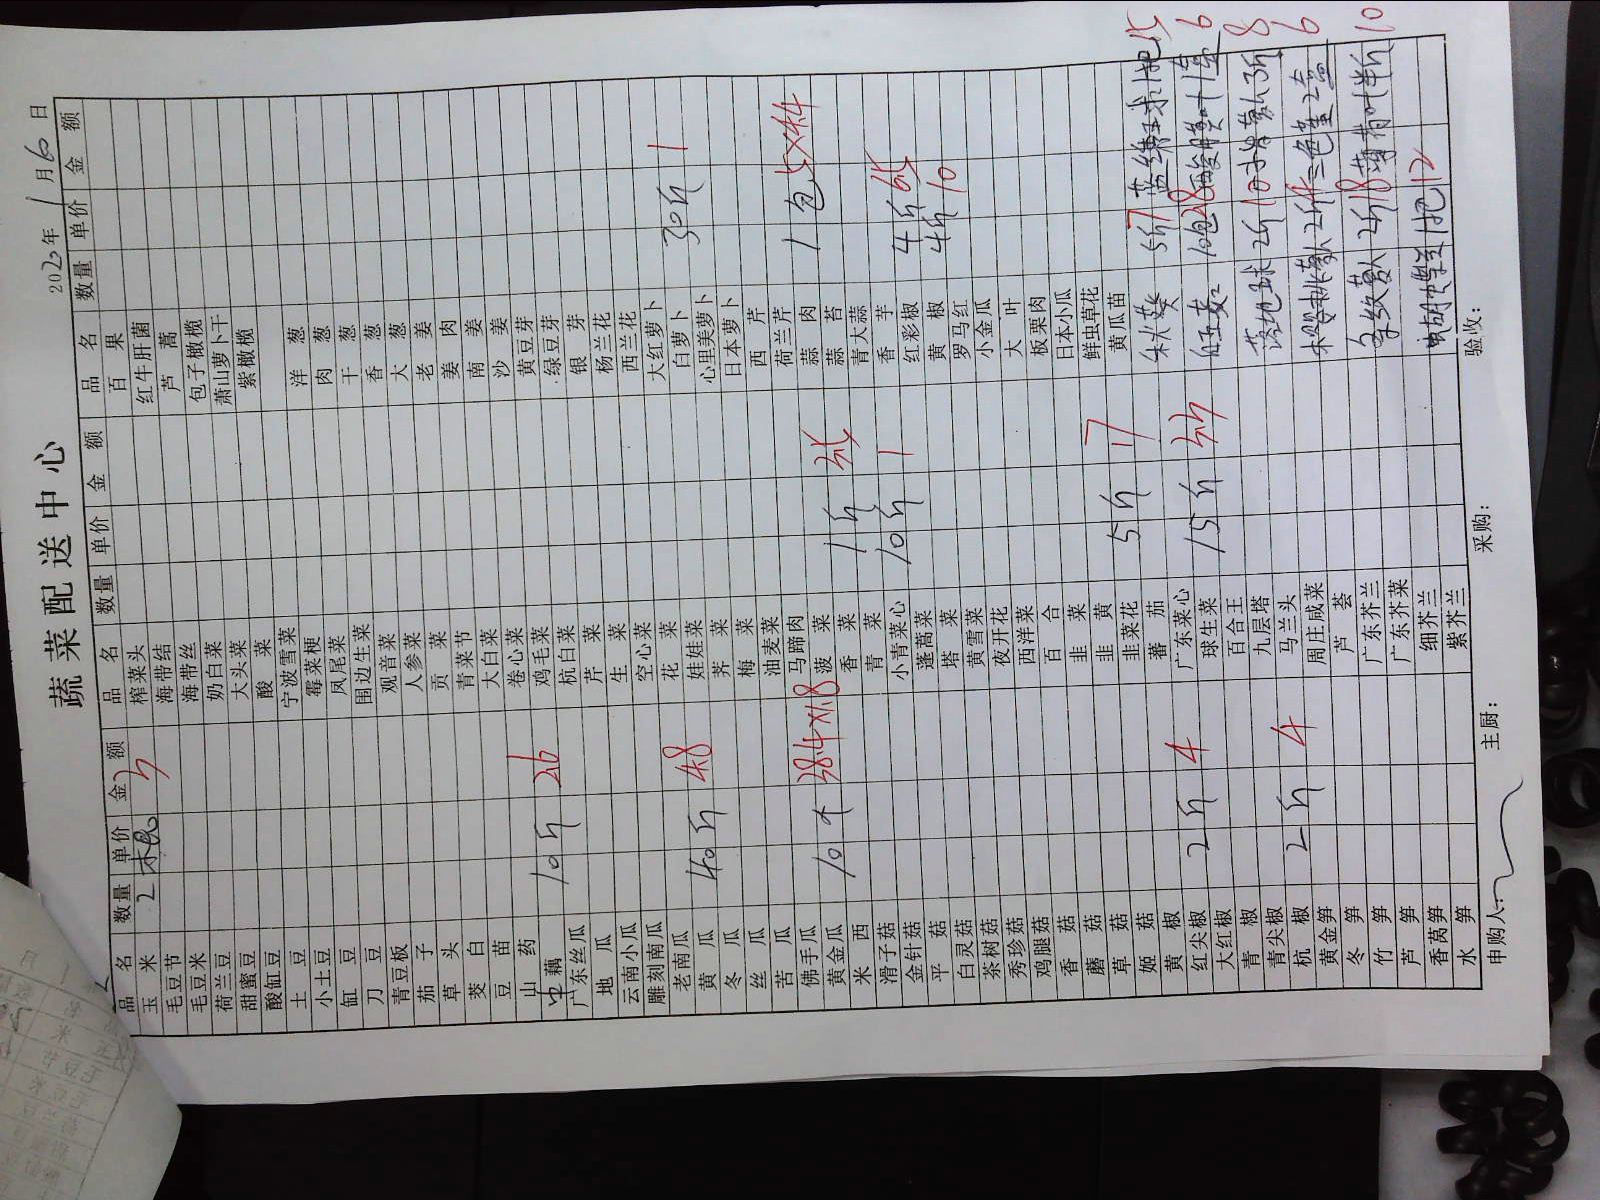 蔬菜配送中心
2020年1月6日
品名 数量 单价 金额 品名 数量 单价 金额 品名 数量 单价 金额
玉米 2根 榨菜头 百果
毛豆节 海带结 红牛肝菌
毛豆米 海带丝 芦蒿
荷兰豆 奶白菜 包子橄榄
甜蜜豆 大头菜 萧山萝卜干
酸缸豆 酸菜 紫橄榄
土豆 宁波雪菜
小土豆 霉菜梗 洋葱
缸豆 凤尾菜 肉葱
刀豆 围边生菜 干葱
青豆板 观音菜 香葱
茄子 人参菜 大葱
草头 贡菜 老姜
茭白 青菜节 姜肉
豆苗 大白菜 南姜
山药 卷心菜 沙姜
中藕 10斤 26 鸡毛菜 黄豆芽
广东丝瓜 杭白菜 绿豆芽
地瓜 芹菜 银芽
云南小瓜 生菜 杨兰花
雕刻南瓜 空心菜 西兰花
老南瓜 花菜 大红萝卜
黄瓜 40斤 4.8 娃娃菜 白萝卜 30斤 1
冬瓜 荠菜 心里美萝卜
丝瓜 梅菜 日本萝卜
苦瓜 油麦菜 西芹
佛手瓜 马蹄肉 荷兰芹
黄金瓜 10个 38.4×1.8 菠菜 1斤 蒜肉 1包 5×4.4
米西 香菜 蒜苔
滑子菇 青菜 10斤 1 青大蒜
金针菇 小青菜心 香芋
平菇 蓬蒿菜 红彩椒 4斤 6.5
白灵菇 塔菜 黄椒 4斤 10
茶树菇 黄雪菜 罗马红
秀珍菇 夜开花 小金瓜
鸡腿菇 西洋菜 大叶
香菇 百合 板栗肉
蘑菇 韭菜 日本小瓜
草菇 韭黄 鲜虫草花
姬菇 韭菜花 5斤 17 黄瓜苗
黄椒 番茄 秋葵 5斤 7
红尖椒 2斤 4 广东菜心 15斤
大红椒 球生菜
青椒 百合王
青尖椒 九层塔
杭椒 2斤 4 马兰头
黄金笋 周庄咸菜
冬笋 芦荟
竹笋 广东芥兰
芦笋 广东芥菜
香莴笋 细芥兰
水笋 紫芥兰
申购人: 主厨: 采购: 验收: